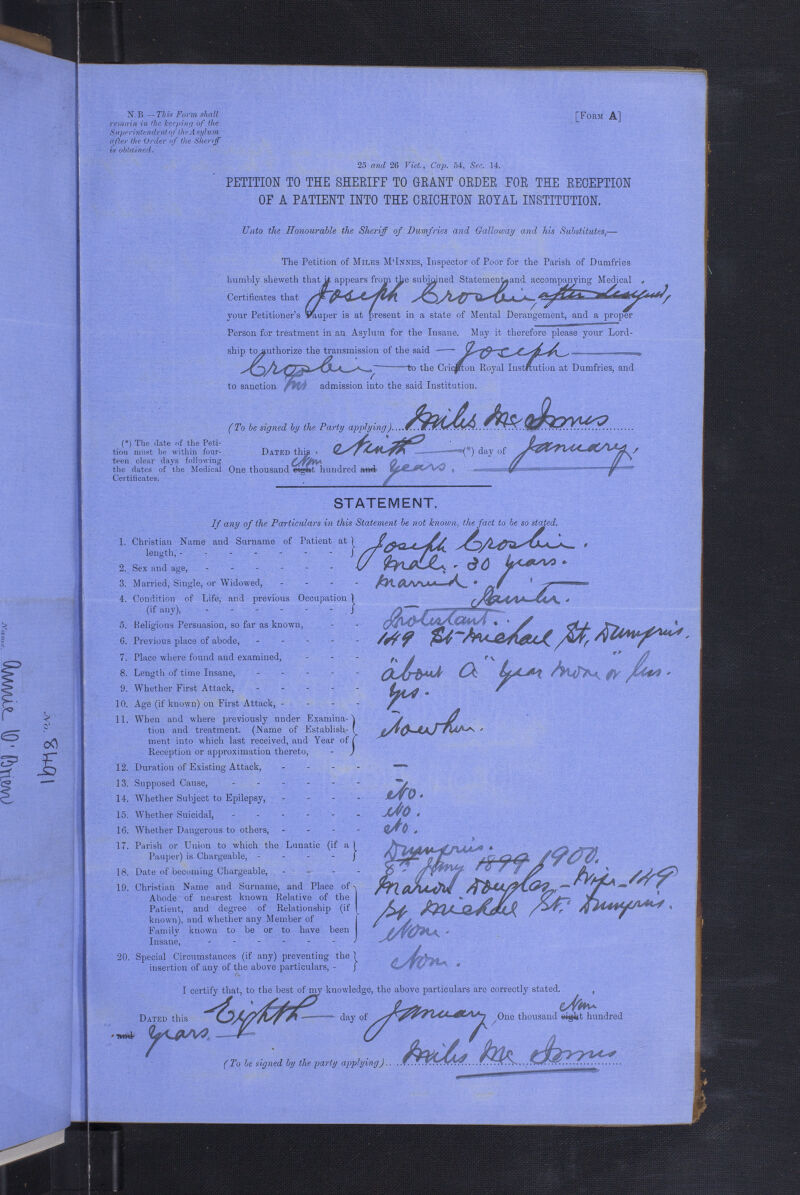 N.B.—This Form shall
remain in the keeping of the
Superintendent of the Asylum
after the Order of the Sheriff
is obtained.
[Form A]
25 and 26 Vict., Cap. 54, Sec. 14.
PETITION TO THE SHERIFF TO GRANT ORDER FOR THE RECEPTION
OF A PATIENT INTO THE CRICHTON ROYAL INSTITUTION.
Unto the Honourable the Sheriff of Dumfries and Galloway and his Substitutes,—
The Petition of Miles M'Innes, Inspector of Poor for the Parish of Dumfries
humbly sheweth that it appears from the subjoined Statement and accompanying Medical
Certificates that Joseph Crosbie, after designed,
your Petitioner's Pauper is at present in a state of Mental Derangement, and a proper
Person for treatment in an Asylum for the Insane. May it therefore please your Lord-
ship to authorize the transmission of the said — Joseph —
Crosbie, — to the Crichton Royal Institution at Dumfries, and
to sanction his admission into the said Institution.
(To be signed by the Party applying) Miles McInnes
(*) The date of the Peti-
tion must be within four-
teen clear days following
the dates of the Medical
Certificates.
Dated this Ninth — (*) day of January,
One thousand eight Nine hundred and years.
STATEMENT.
If any of the Particulars in this Statement be not known, the fact to be so stated.
1. Christian Name and Surname of Patient at
length, - Joseph Crosbie.
2. Sex and age, - Male. 30 years.
3. Married, Single, or Widowed, - Married.
4. Condition of Life, and previous Occupation
(if any), Painter.
5. Religious Persuasion, so far as known, - Protestant.
6. Previous place of abode, - 149 St Michael St, Dumfries.
7. Place where found and examined, -
8. Length of time Insane, - "about a" year more "or" less.
9. Whether First Attack, - yes.
10. Age (if known) on First Attack, -
11. When and where previously under Examina-
tion and treatment. (Name of Establish-
ment into which last received, and Year of
Reception or approximation thereto, - Nowhere.
12. Duration of Existing Attack, - —
13. Supposed Cause, - —
14. Whether Subject to Epilepsy, - No.
15. Whether Suicidal, - No.
16. Whether Dangerous to others, - No.
17. Parish or Union to which the Lunatic (if a
Pauper) is Chargeable, - Dumfries.
18. Date of becoming Chargeable, - 8th Jany 1899 1900.
19. Christian Name and Surname, and Place of
Abode of nearest known Relative of the
Patient, and degree of Relationship (if
known), and whether any Member of
Family known to be or to have been
Insane, -
Marion Douglas – Wife – 149
St Michael St. Dumfries.
None.
20. Special Circumstances (if any) preventing the
insertion of any of the above particulars, - None.
I certify that, to the best of my knowledge, the above particulars are correctly stated.
Dated this Eighth — day of January, One thousand eight Nine hundred
and years —
(To be signed by the party applying) Miles McInnes
Name
Annie O'Brien
No. 8491